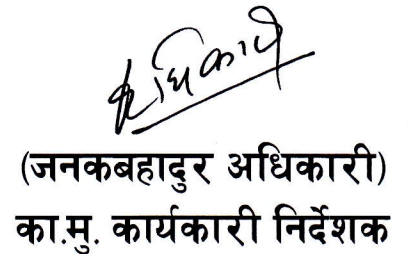 अधिकारी
(जनकबहादुर अधिकारी)
का.मु. कार्यकारी निर्देशक